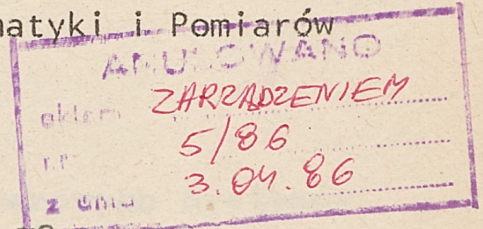 matyki i Pomiarów
ANULOWANO
aktem ZARZĄDZENIEM
nr 5/86
z dnia 3.04.86